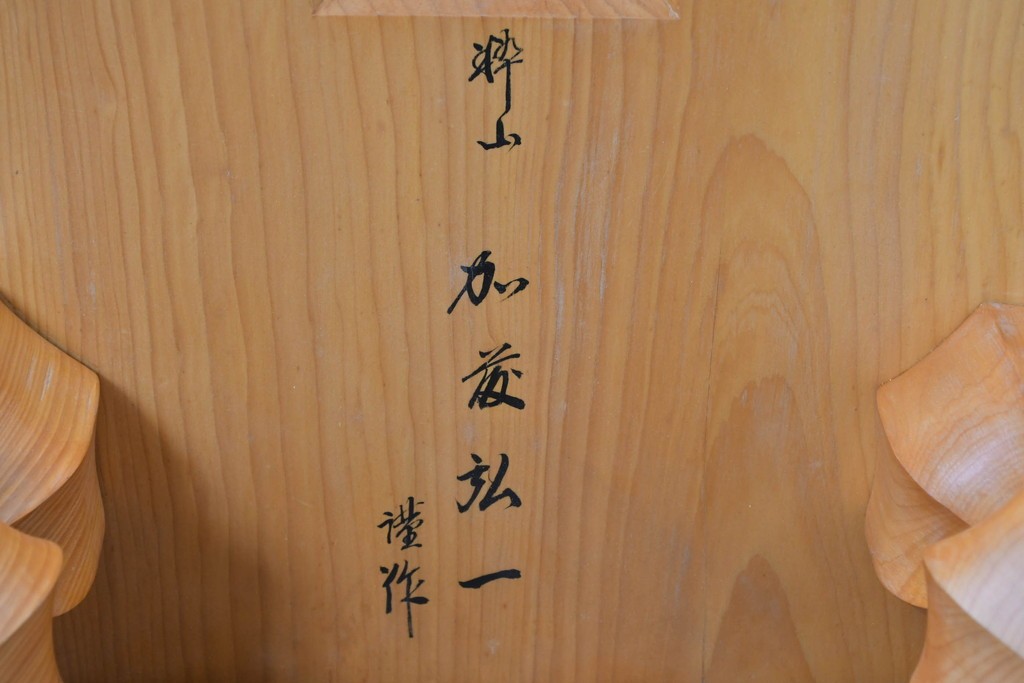 粋山 加茂弘一
謹作